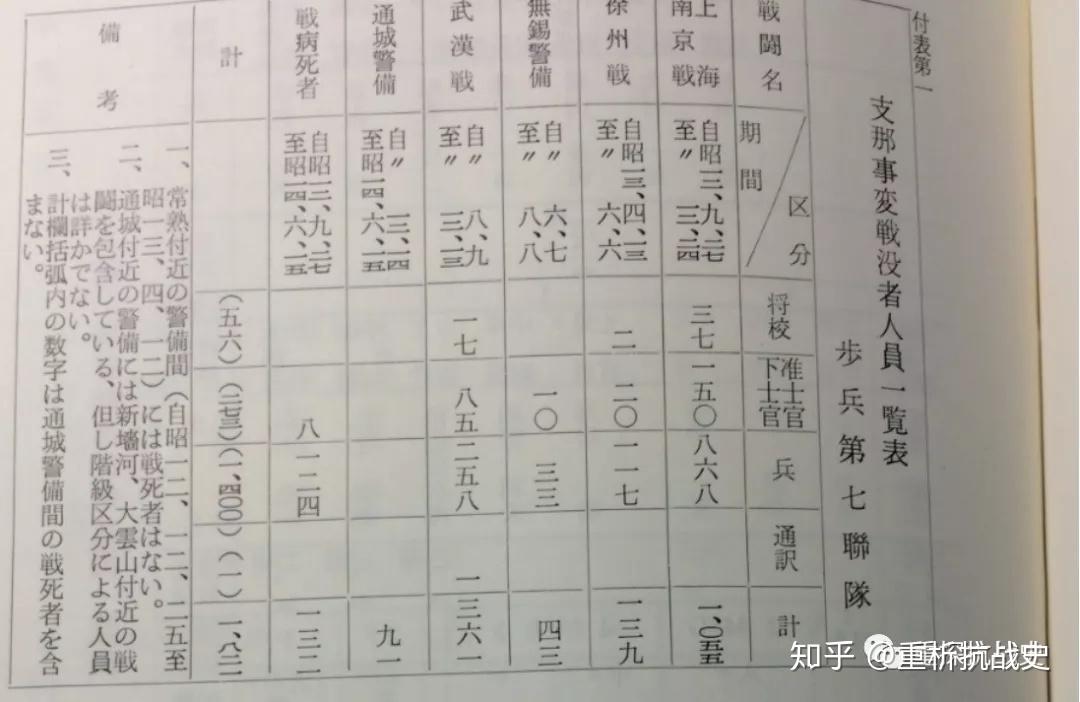 付表第一
支那事変戦没者人員一覧表
歩兵第七聯隊
戦闘名 期間/区分 将校 准士官下士官 兵 通訳 計
上海南京戦 自昭一二、九、二七 至〃一二、二四 三七 一五〇 八六八 一、〇五五
徐州戦 自昭一三、四、一三 至〃六、六 二 二〇 一一七 一三九
無錫警備 自〃六、七 至〃八、八 一〇 三三 四三
武漢戦 自〃八、九 至〃 一七 八五 二五八 一 三六一
通城警備 自〃 至昭一四、六、一五 九一
戦病死者 自昭一二、九、二七 至昭一四、六、一五 八 一二四 一三二
計 （五六） （二七三） （一、四〇〇） （一） 一、八二一
備考
一、常熟付近の警備間（自昭一二、一二、二五至
昭一三、四、一二）には戦死者はない。
二、通城付近の警備には新墻河、大雲山付近の戦
闘を包含している、但し階級区分による人員
は詳かでない。
三、計欄括弧内の数字は通城警備間の戦死者を含
まない。
知乎 @重析抗战史